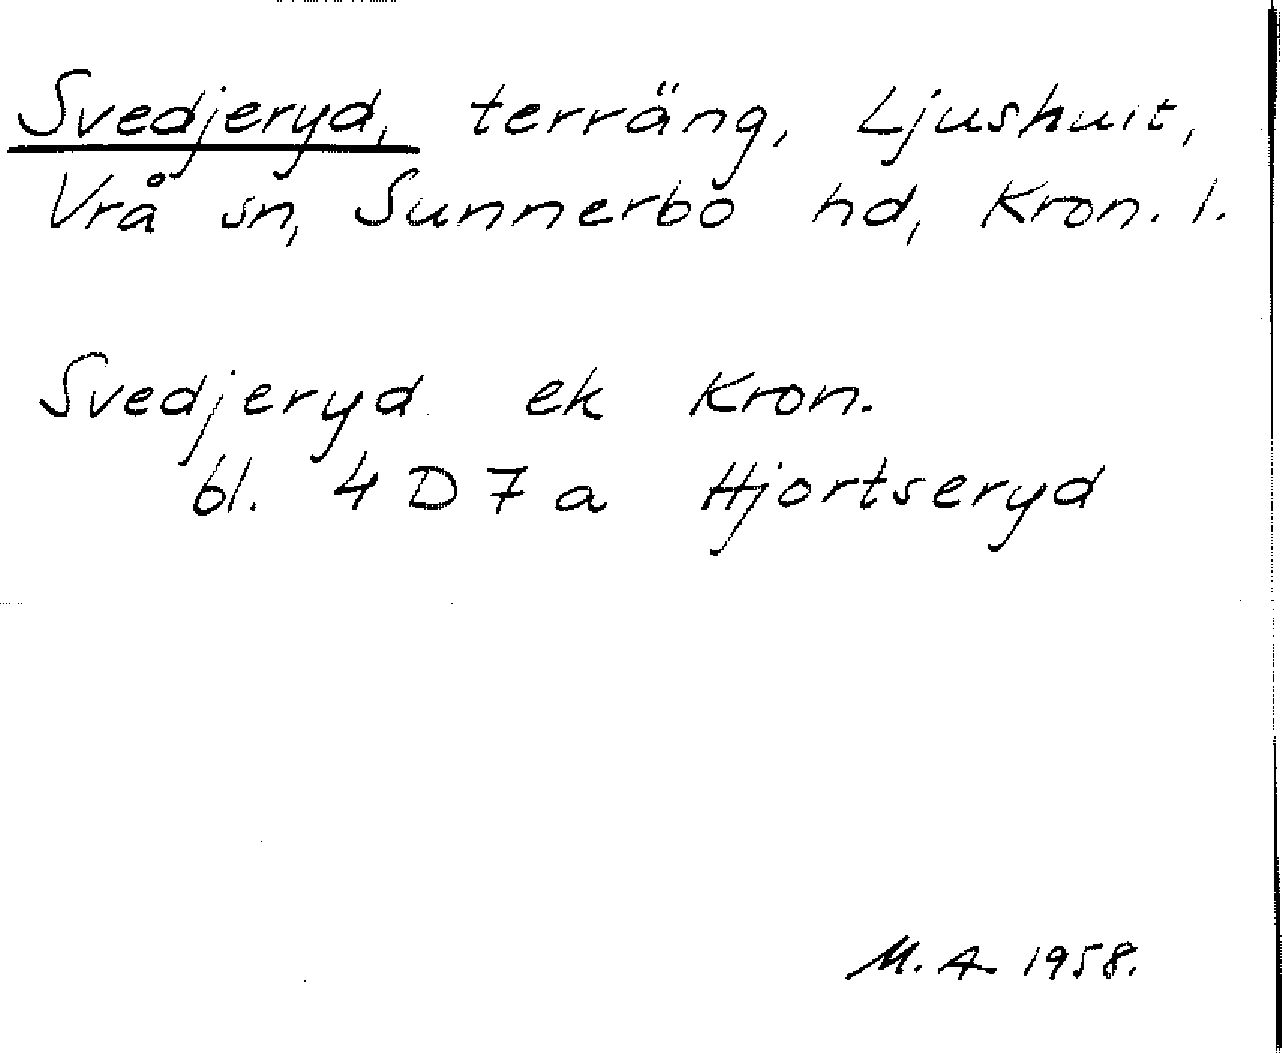 Svedjeryd, terräng, Ljushult,
Vrå sn, Sunnerbo hd, Kron. l.
Svedjeryd ek Kron.
bl. 4 D 7 a Hjortseryd
M. A. 1958.